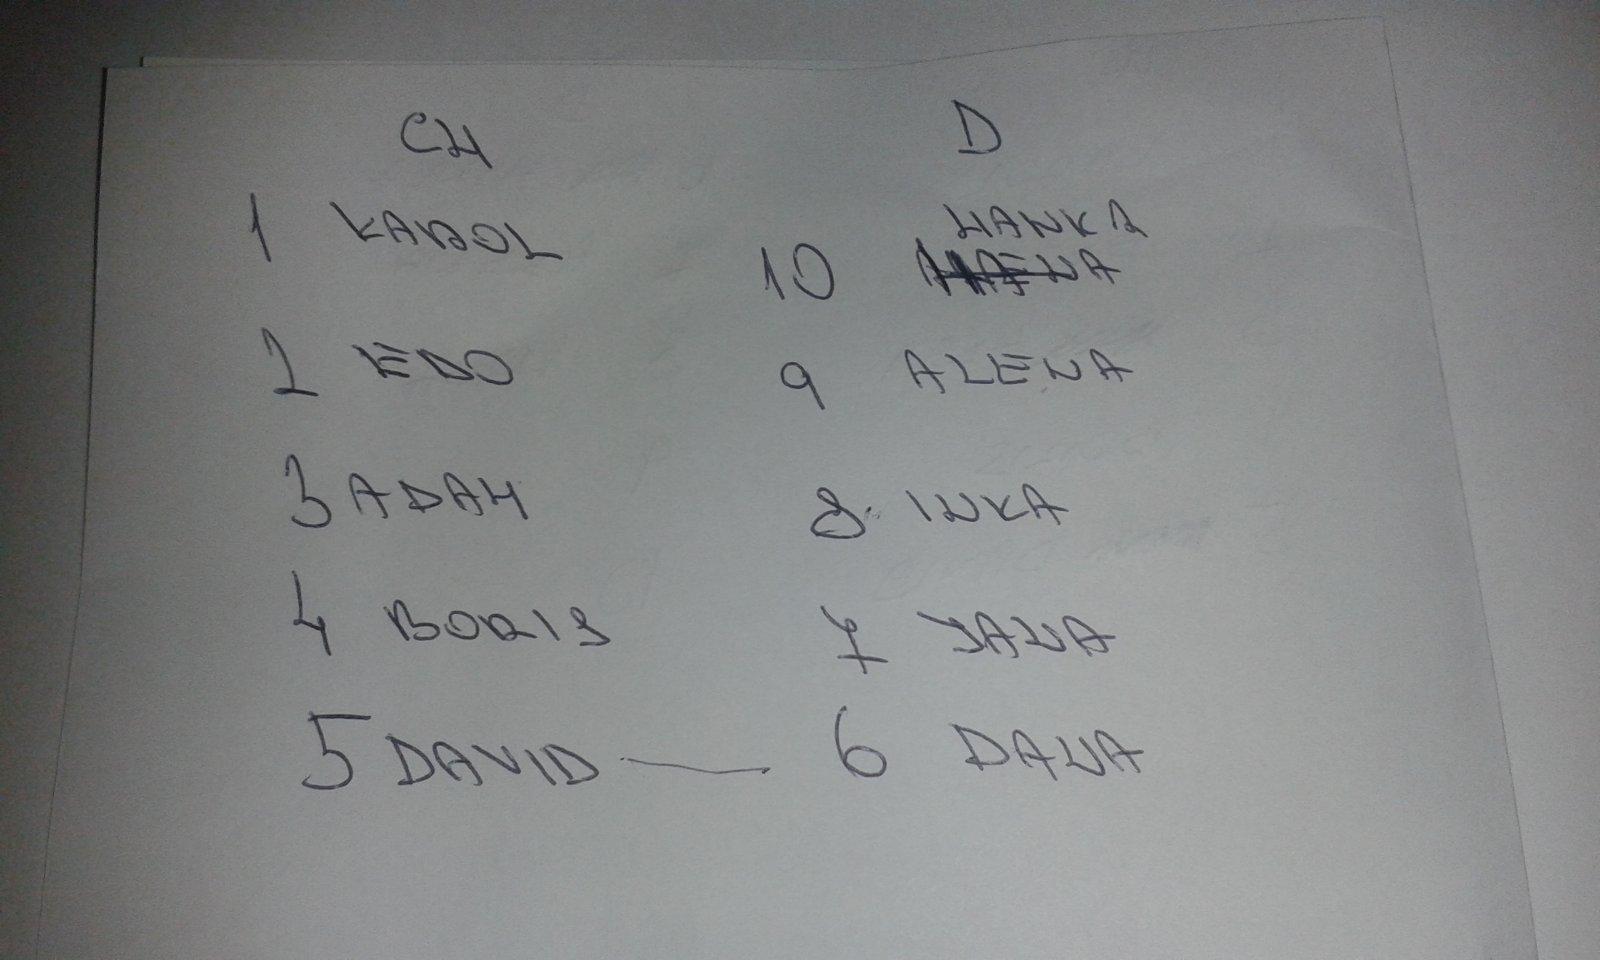 CH D
1 KAROL
HANKA
10 ALENA
2 EDO 9 ALENA
3 ADAM 8. INKA
4 BORIS 7 JANA
5 DAVID — 6 DANA